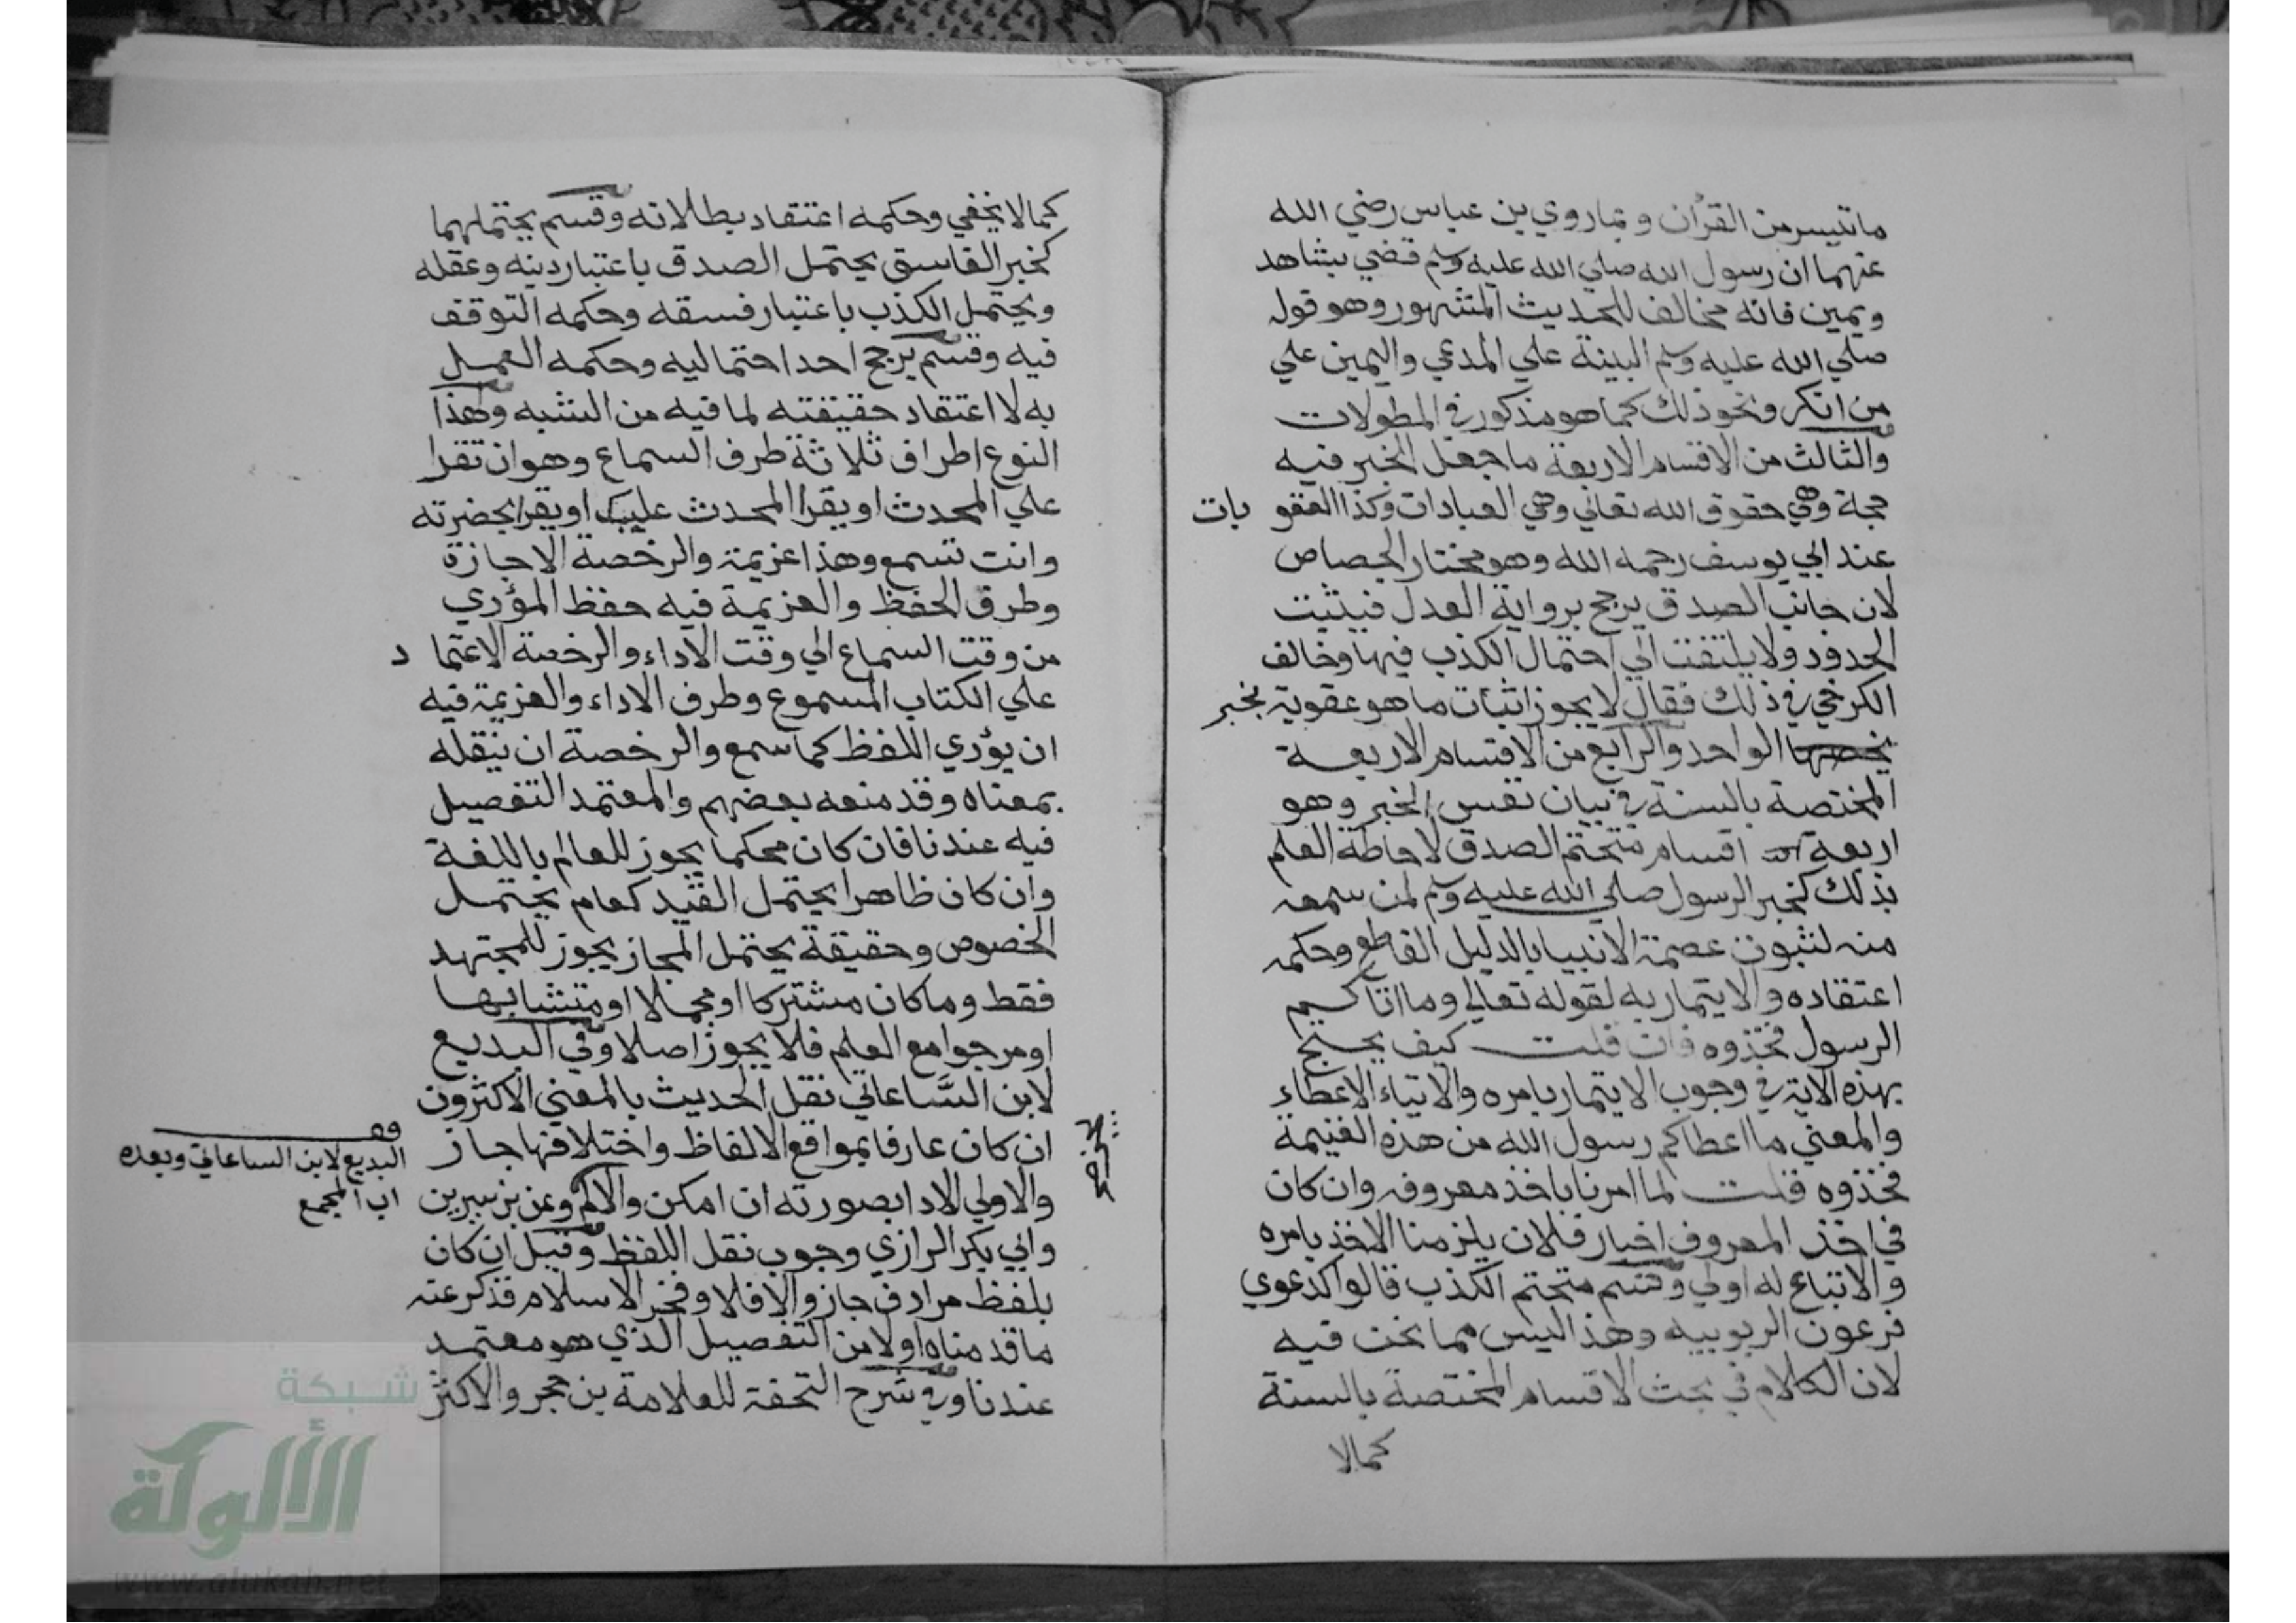 ماتيسر من القرآن وبما روي بن عباس رضي الله
عنهما ان رسول الله صلي الله عليه وسلم قضي بشاهد
ويمين فانه مخالف للحديث المشهور وهو قوله
صلي الله عليه وسلم البينة علي المدعي واليمين علي
من انكر ونحو ذلك كما هو مذكور في المطولات
والثالث من الاقسام الاربعة ما جعل الخبر فيه
حجة وهي حقوق الله تعالي وهي العبادات وكذا العقوبات
عند ابي يوسف رحمه الله وهو مختار الجصاص
لان جانب الصدق يرجح برواية العدل فيثبت
الحدود ولا يلتفت الي احتمال الكذب فيها وخالف
الكرخي في ذلك فقال لا يجوز اثبات ما هو عقوبة بخبر
الواحد والرابع من الاقسام الاربعة
المختصة بالسنة في بيان نفس الخبر وهو
اربعة اقسام متحتم الصدق لاحاطة العلم
بذلك كخبر الرسول صلي الله عليه وسلم لمن سمعه
منه لثبوت عصمة الانبيا بالدليل القاطع وحكمه
اعتقاده والايتمار به لقوله تعالي وما اتاكم
الرسول فخذوه فان قلت كيف يحتج
بهذه الاية في وجوب الايتمار بامره والايتاء الاعطاء
والمعني ما اعطاكم رسول الله من هذه الغنيمة
فخذوه قلت لما امرنا باخذ معروفه وان كان
في اخذ المعروف اخبار فلان يلزمنا الاخذ بامره
والاتباع له اولي وقسم متحتم الكذب قالوا كدعوي
فرعون الربوبيه وهذا ليس مما نحن فيه
لان الكلام في بحث الاقسام المختصة بالسنة
كمالا
كمالا يخفي وحكمه اعتقاد بطلانه وقسم يحتملهما
كخبر الفاسق يحتمل الصدق باعتبار دينه وعقله
ويحتمل الكذب باعتبار فسقه وحكمه التوقف
فيه وقسم يرجح احد احتماليه وحكمه العمل
به لا اعتقاد حقيقته لما فيه من الشبه وهذا
النوع اطراف ثلاثة طرف السماع وهو ان تقرا
علي المحدث او يقرا المحدث عليك او يقرا بحضرته
وانت تسمع وهذا عزيمة والرخصة الاجازة
وطرق الحفظ والعزيمة فيه حفظ المؤدي
من وقت السماع الي وقت الاداء والرخصة الاعتماد
علي الكتاب المسموع وطرف الاداء والعزيمة فيه
ان يؤدي اللفظ كما سمع والرخصة ان ينقله
بمعناه وقد منعه بعضهم والمعتمد التفصيل
فيه عندنا فان كان محكما يجوز للعالم باللغة
وان كان ظاهرا يحتمل القيد كعام يحتمل
الخصوص وحقيقة يحتمل المجاز يجوز للمجتهد
فقط وما كان مشتركا او مجملا او متشابها
او من جوامع العلم فلا يجوز اصلا وفي البديع
لابن الساعاتي نقل الحديث بالمعني الاكثرون
ان كان عارفا بمواقع الالفاظ واختلافها جاز
والاولي الادا بصورته ان امكن وعن بن سيرين
وابي بكر الرازي وجوب نقل اللفظ وقيل ان كان
بلفظ مرادف جاز والا فلا وفخر الاسلام قد ذكر عنه
ما قدمناه اولا من التفصيل الذي هو معتمد
عندنا وفي شرح التحفة للعلامة بن حجر والاكثر
البديع لابن الساعاتي وبعده
المجمع
شبكة
الألوكة
www.alukah.net